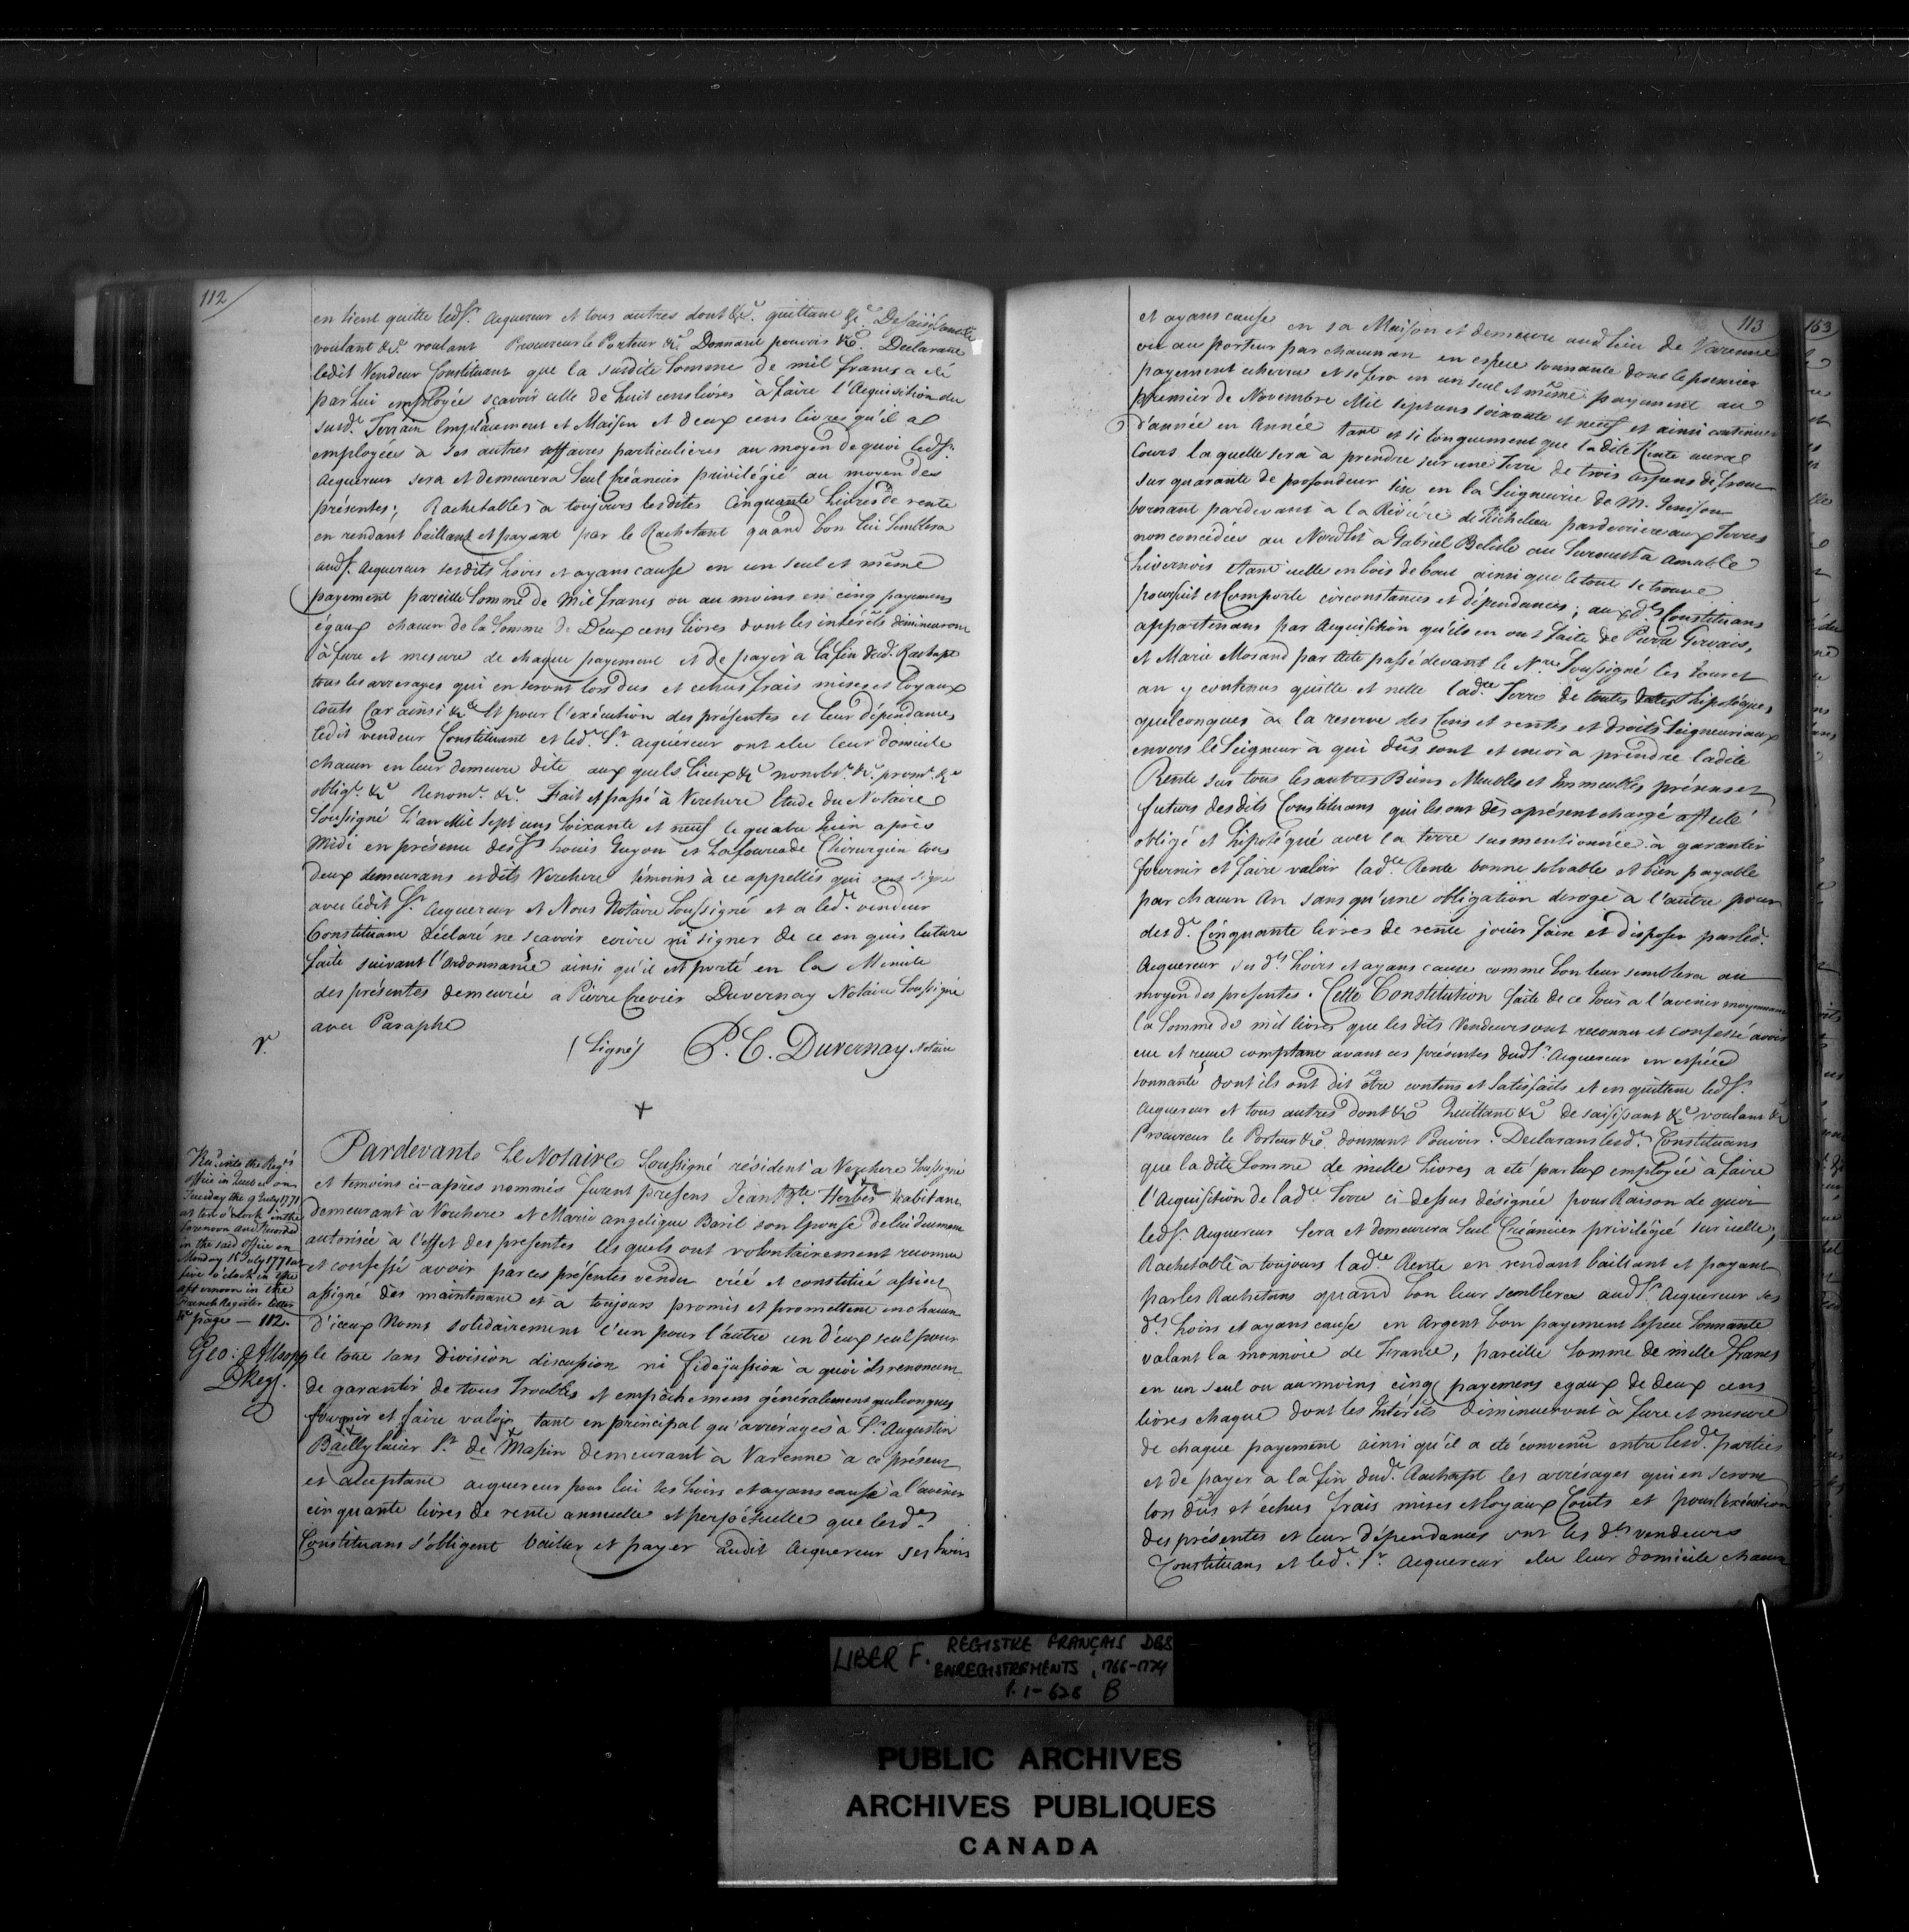 112
en tient quitte leds.r Acquereur et tous autres dont &c.a quittant &c.a Desaisissant &c
voulant &c.a voulant Procureur le Porteur &c.a Donnant pouvoir &c.a Declarant
ledit Vendeur Constituant que la susdite Somme de mil francs a eté
par Lui employée sçavoir celle de huit cens livres à faire l'Acquisition du
susd.t Terrain Emplacement et Maison et deux cens livres qu'il a
employées à ses autres affaires particulieres au moyen de quoi leds.r
Acquereur sera et demeurera Seul Créancier privilégié au moyen des
présentes; Rachetables à toujours les dites Cinquante Livres de rente
en rendant baillant et payant par le Rachetant quand bon lui Semblera
auds.r Acquereur sesdits hoirs et ayans cause en un seul et même
payement pareille Somme de Mil francs ou au moins en cinq payemens
égaux chacun de la Somme de Deux cens Livres dont les intérêts diminueront
à fure et mesure de chaque payement et de payer à la fin dud.t Rachapt
tous les arrerages qui en seront lors dus et echus frais mises et loyaux
couts Car ainsi &c.a Et pour l'exécution des présentes et leur dépendances
ledit vendeur Constituant et led.t S.r acquéreur ont elu leur domicile
chacun en leur demeure dite aux quels lieux &c.a nonobs.t &c.a prom.t &c.a
oblig.t &c.a Renonc.t &c.a Fait et passé à Verchere Etude du Notaire
Soussigné L'an Mil Sept cens Soixante et neuf le quatre Juin après
Midi en présence des S.rs Louis Guyon et Lafourcade Chirurgien tous
deux demeurans esdits Verchere témoins à ce appellés qui ont signé
avec ledit S.r Acquereur et Nous Notaire Soussigné et a led.t vendeur
Constituant déclaré ne sçavoir écrire ni signer de ce enquis lecture
faite suivant l'Ordonnance ainsi qu'il est porté en la Minute
des présentes demeurée a Pierre Crevier Duvernay Notaire Soussigné
avec Paraphe
(Signé) P. C. Duvernay Notaire
+
Rec.d into the Reg.rs
office in Quebec on
Tuesday the 9 July 1771
at ten o'clock in the
forenoon and Recorded
in the said Office on
Monday 15 July 1771 at
five o'clock in the
afternoon in the
French Register letter
page — 112.
Geo: Allsopp
DReg.
Pardevant Le Notaire Soussigné résident à Verchere Soussigné
et temoins ci-après nommés furent presens Jean Bte Herbec habitant
demeurant à Verchere et Marie angelique Baril son Epouse de lui duement
autorisée à l'effet des presentes lesquels ont volontairement reconnu
et confessé avoir par ces présentes vendu créé et constitué assis et
assigné dès maintenant et à toujours promis et promettent en chacun
d'iceux Noms solidairement l'un pour l'autre un d'eux seul pour
le tout sans Division discussion ni fidejussion à quoi ils renoncent
de garantir de tous Troubles et empêchemens généralement quelconques
fournir et faire valoir tant en principal qu'arrérages à S.r Augustin
Bailly S.r de Massin demeurant à Varenne à ce présent
et acceptant acquereur pour lui ses hoirs et ayans cause à l'avenir
cinquante livres de rente annuelle et perpétuelle que lesd.ts
Constituans s'obligent bailler et payer audit Acquereur ses hoirs
113
et ayans cause en sa Maison et demeure aud.t lieu de Varenne
ou au porteur par chacun an en espece sonnante dont le premier
payement echerra et se fera en un seul et même payement au
premier de Novembre Mil sept cens soixante et neuf et ainsi continuer
d'année en Année tant et si longuement que ladite Rente aura
Cours laquelle sera à prendre sur une Terre de trois arpens de front
sur quarante de profondeur sise en la Seigneurie de M.
bornant pardevant à la Rivière de Richelieu par derriere aux Terres
non concédées au Nord'Est à Gabriel Belisle au Surouest à Amable
Livernois etant icelle en bois de bout ainsi que le tout se trouve
poursuit et Comporte circonstances et dépendances; auxd.ts Constituans
appartenans par Acquisition qu'ils en ont faite de Pierre Gervais,
et Marie Morand par Acte passé devant le N.re Soussigné les jour et
an y contenus quitte et nette lad.te Terre de toutes dettes hipotéques
quelconques à la reserve des Cens et rentes et droits Seigneuriaux
envers le Seigneur à qui dûs sont et encor à prendre ladite
Rente sur tous les autres Biens Meubles et Immeubles présens et
futurs desdits Constituans qui les ont dès aprésent chargé affecté
obligé et hipotéqué avec la terre susmentionnée à garantir
fournir et faire valoir lad.te Rente bonne solvable et bien payable
par chacun An sans qu'une obligation deroge à l'autre pour
desd.tes Cinquante livres de rente jouir faire et disposer par led.t
Acquereur ses d.ts hoirs et ayans cause comme bon leur semblera au
moyen des presentes. Cette Constitution faite de ce Jour à l'avenir moyennant
la Somme de mil livres que les dits Vendeurs ont reconnu et confessé avoir
eue et reçue comptant avant ces présentes duds.r Acquereur en espèce
sonnante dont ils ont dit être contens et satisfaits et en quittent leds.r
Acquereur et tous autres dont &c.a Quittant &c.a desaisissant &c.a voulant &c.a
Procureur le Porteur &c.a donnant Pouvoir. Declarans lesd.ts Constituans
que la dite Somme de mille livres a eté par eux employée à faire
l'Acquisition de lad.te Terre ci dessus désignée pour Raison de quoi
leds.r Acquereur Sera et demeurera Seul Créancier privilégié sur icelle,
Rachetable à toujours lad.te Rente en rendant baillant et payant
par les Rachetans quand bon leur semblera aud.t S.r Acquereur ses
d.ts hoirs et ayans cause en Argent bon payement Espece Sonnante
valant la monnoie de France, pareille Somme de mille francs
en un seul ou au moins cinq payemens egaux de deux cens
livres chaque dont les Intérêts diminueront à fure et mesure
de chaque payement ainsi qu'il a été convenu entre lesd.tes parties
et de payer à la fin dud.t Rachapt les arrérages qui en seront
lors dûs et échus frais mises et loyaux Couts et pour l'exécution
des présentes et leur dépendances ont les d.ts vendeurs
Constituans et led.t S.r Acquereur elu leur domicile chacun
163
LIBER F. REGISTRE FRANÇAIS DES
ENREGISTREMENTS, 1766-1774
P. 1-626 B
PUBLIC ARCHIVES
ARCHIVES PUBLIQUES
CANADA